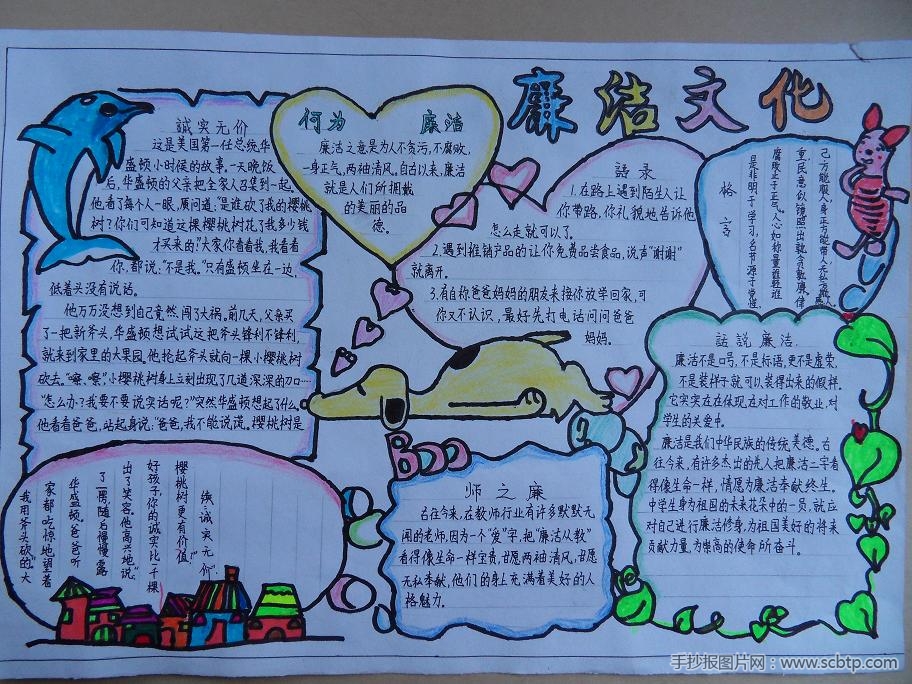 廉洁文化
誠实无价
这是美国第一任总统,华
盛顿小时候的故事,一天晚饭
后,华盛顿的父亲把全家人召集到一起,
他看了每个人一眼,质问道:“是谁砍了我的樱桃
树?你们可知道这棵樱桃树花了我多少钱
才买来的”大家你看看我,我看看
你,都说:“不是我。”只有盛顿坐在一边,
低着头没有说话。
他万万没想到自己竟然,闯了大祸,前几天,父亲买
了一把新斧头,华盛顿想试试这把斧头锋利不锋利,
就来到家里的大果园,他抡起斧头就向一棵小樱桃树
砍去。“嚓、嚓”,小樱桃树身上立刻出现了几道深深的刀口……
“怎么办?我要不要说实话呢?”突然华盛顿想起了什么。
他看看爸爸,站起身说:“爸爸,我不能说谎。樱桃树是
续:誠实无价
我用斧头砍的”大
家都吃惊地望着
华盛顿。爸爸听
了一愣,随后慢慢露
出了笑容。他高兴地说:
好孩子,你的诚实比一千棵
樱桃树更有价值!”
何为廉洁
廉洁之意是为人不贪污,不腐败,
一身正气,两袖清风,自古以来,廉洁
就是人们所拥戴
的美丽的品
德。
語录
1.在路上遇到陌生人让
你带路,你礼貌地告诉他
怎么走就可以了。
2.遇到推销产品的让你免费品尝食品,说声“谢谢”
就离开。
3.有自称爸爸妈妈的朋友来接你放学回家,可
你又不认识,最好先打电话问问爸爸
妈妈。
格言
话説廉洁.
廉洁不是口号,不是标语,更不是虚荣,
不是装样子就可以装得出来的假样。
它实实在在体现在对工作的敬业,对
学生的关爱中。
廉洁是我们中华民族的传统美德。古
往今来,有许多杰出的先人把廉洁二字看
得像生命一样,情愿为廉洁奉献终生。
中学生身为祖国的未来花朵中的一员,就应
对自己进行廉洁修身,为祖国美好的将来
贡献力量,为崇高的使命所奋斗。
Boo
师之廉
古往今来,在教师行业有许多默默无
闻的老师,因为一个“爱”字,把“廉洁从教”
看得像生命一样宝贵,甘愿两袖清风,甘愿
无私奉献,他们的身上充满着美好的人
格魅力。
手抄报图片网:www.scbtp.com